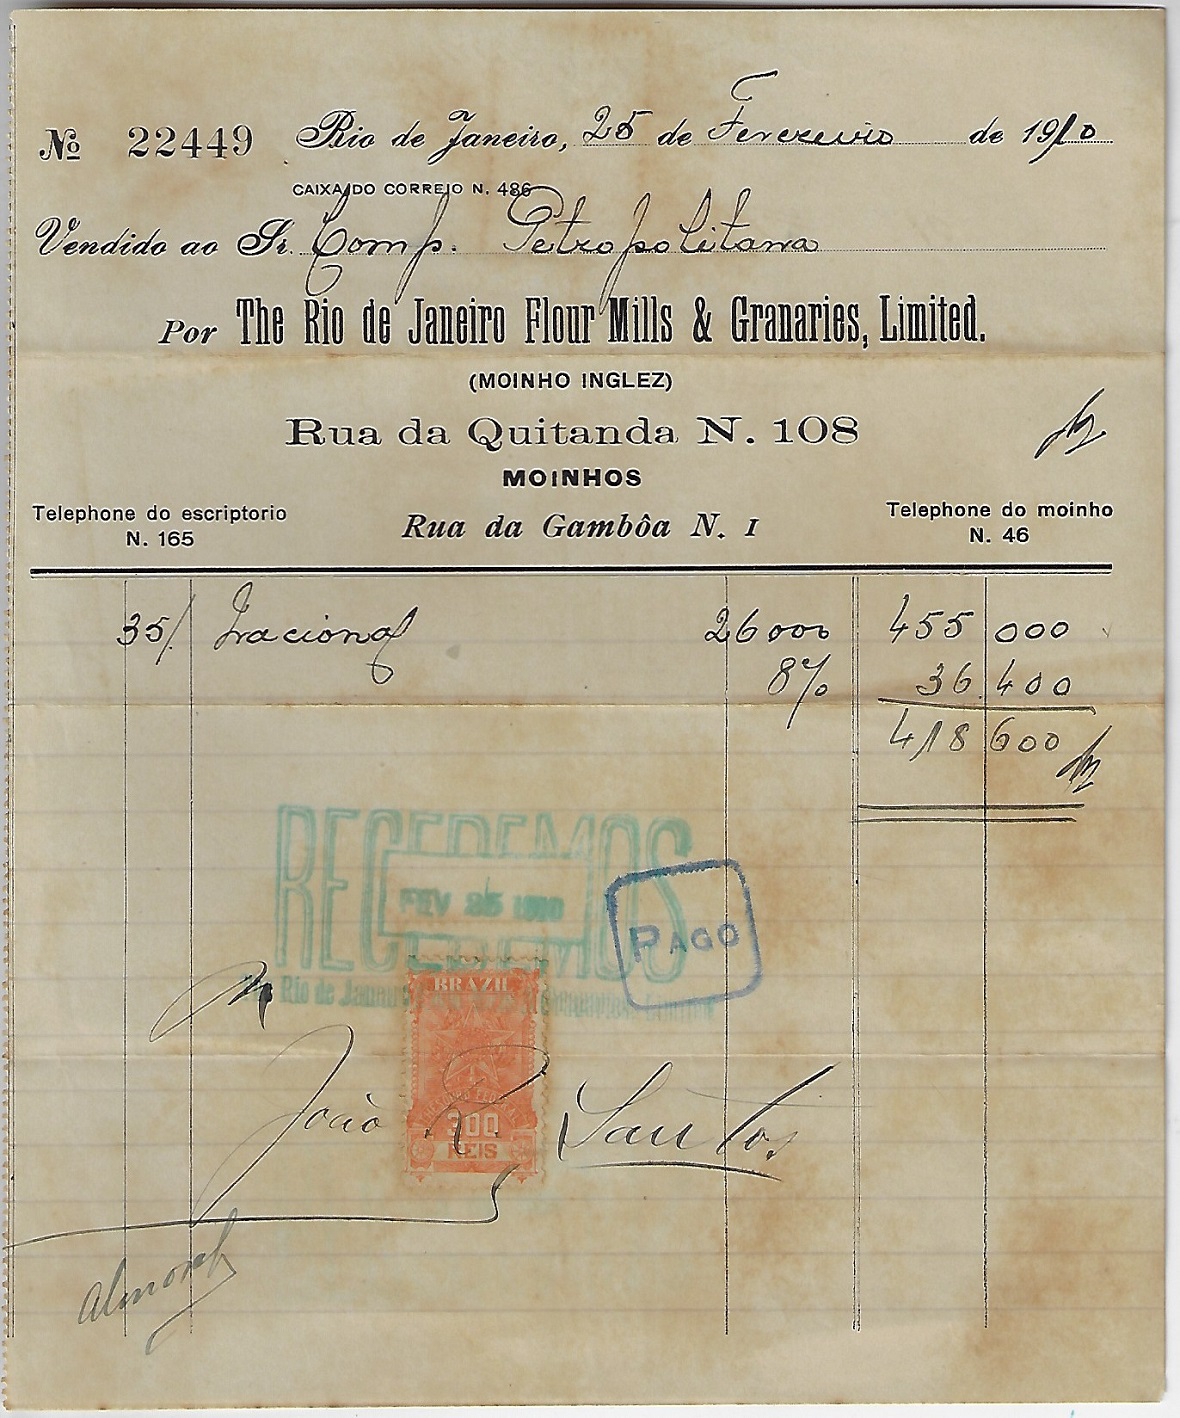 Nº 22449 Rio de Janeiro, 25 de Fevereiro de 1910
CAIXA DO CORREIO N. 486
Vendido ao Sr. Comp. Petropolitana
Por The Rio de Janeiro Flour Mills & Granaries, Limited.
(MOINHO INGLEZ)
Rua da Quitanda N. 108
MOINHOS
Telephone do escriptorio
N. 165
Rua da Gambôa N. 1
Telephone do moinho
N. 46
35/ Nacional 26000 455 000
8% 36.400
418 600
RECEBEMOS
FEV 25 1910
PAGO
Rio de Janeiro
BRAZIL
THESOURO FEDERAL
300
REIS
João R. Santos